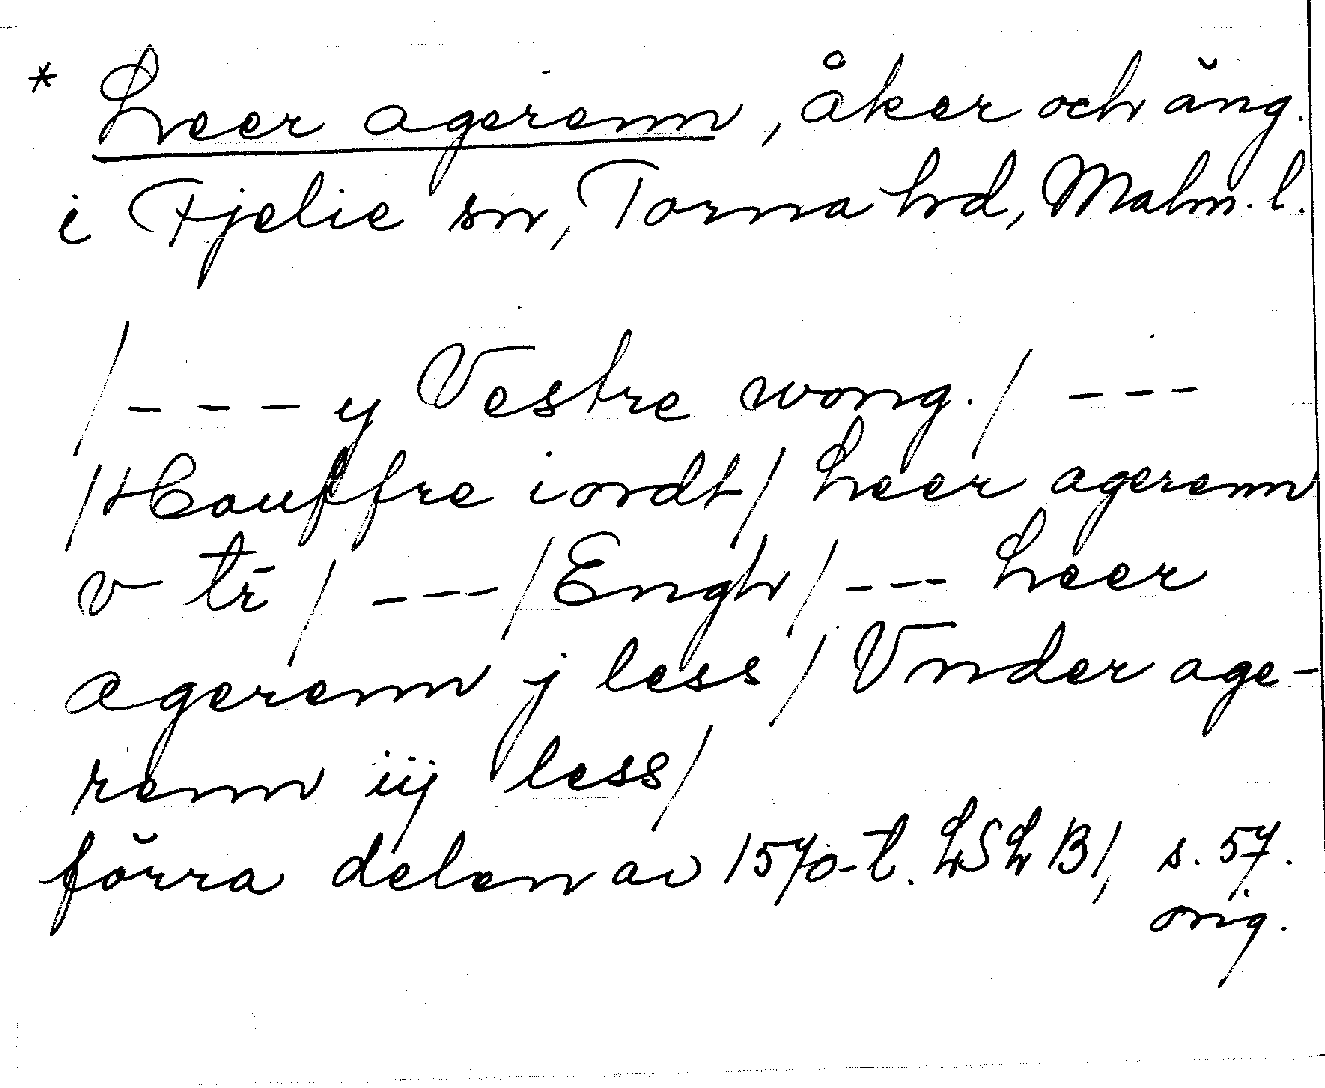 * Leer agerenn, åker och äng.
i Fjelie sn, Torna hd, Malm. l.
/ - - - y Vestre wong. / - - -
/ Houffre iordt / Leer agerenn
v - tr̄ / - - - / Engh / - - - Leer
agerenn j less / Vnder age-
renn iij less /
förra delen av 1570-t. LSLB1, s. 57.
orig.